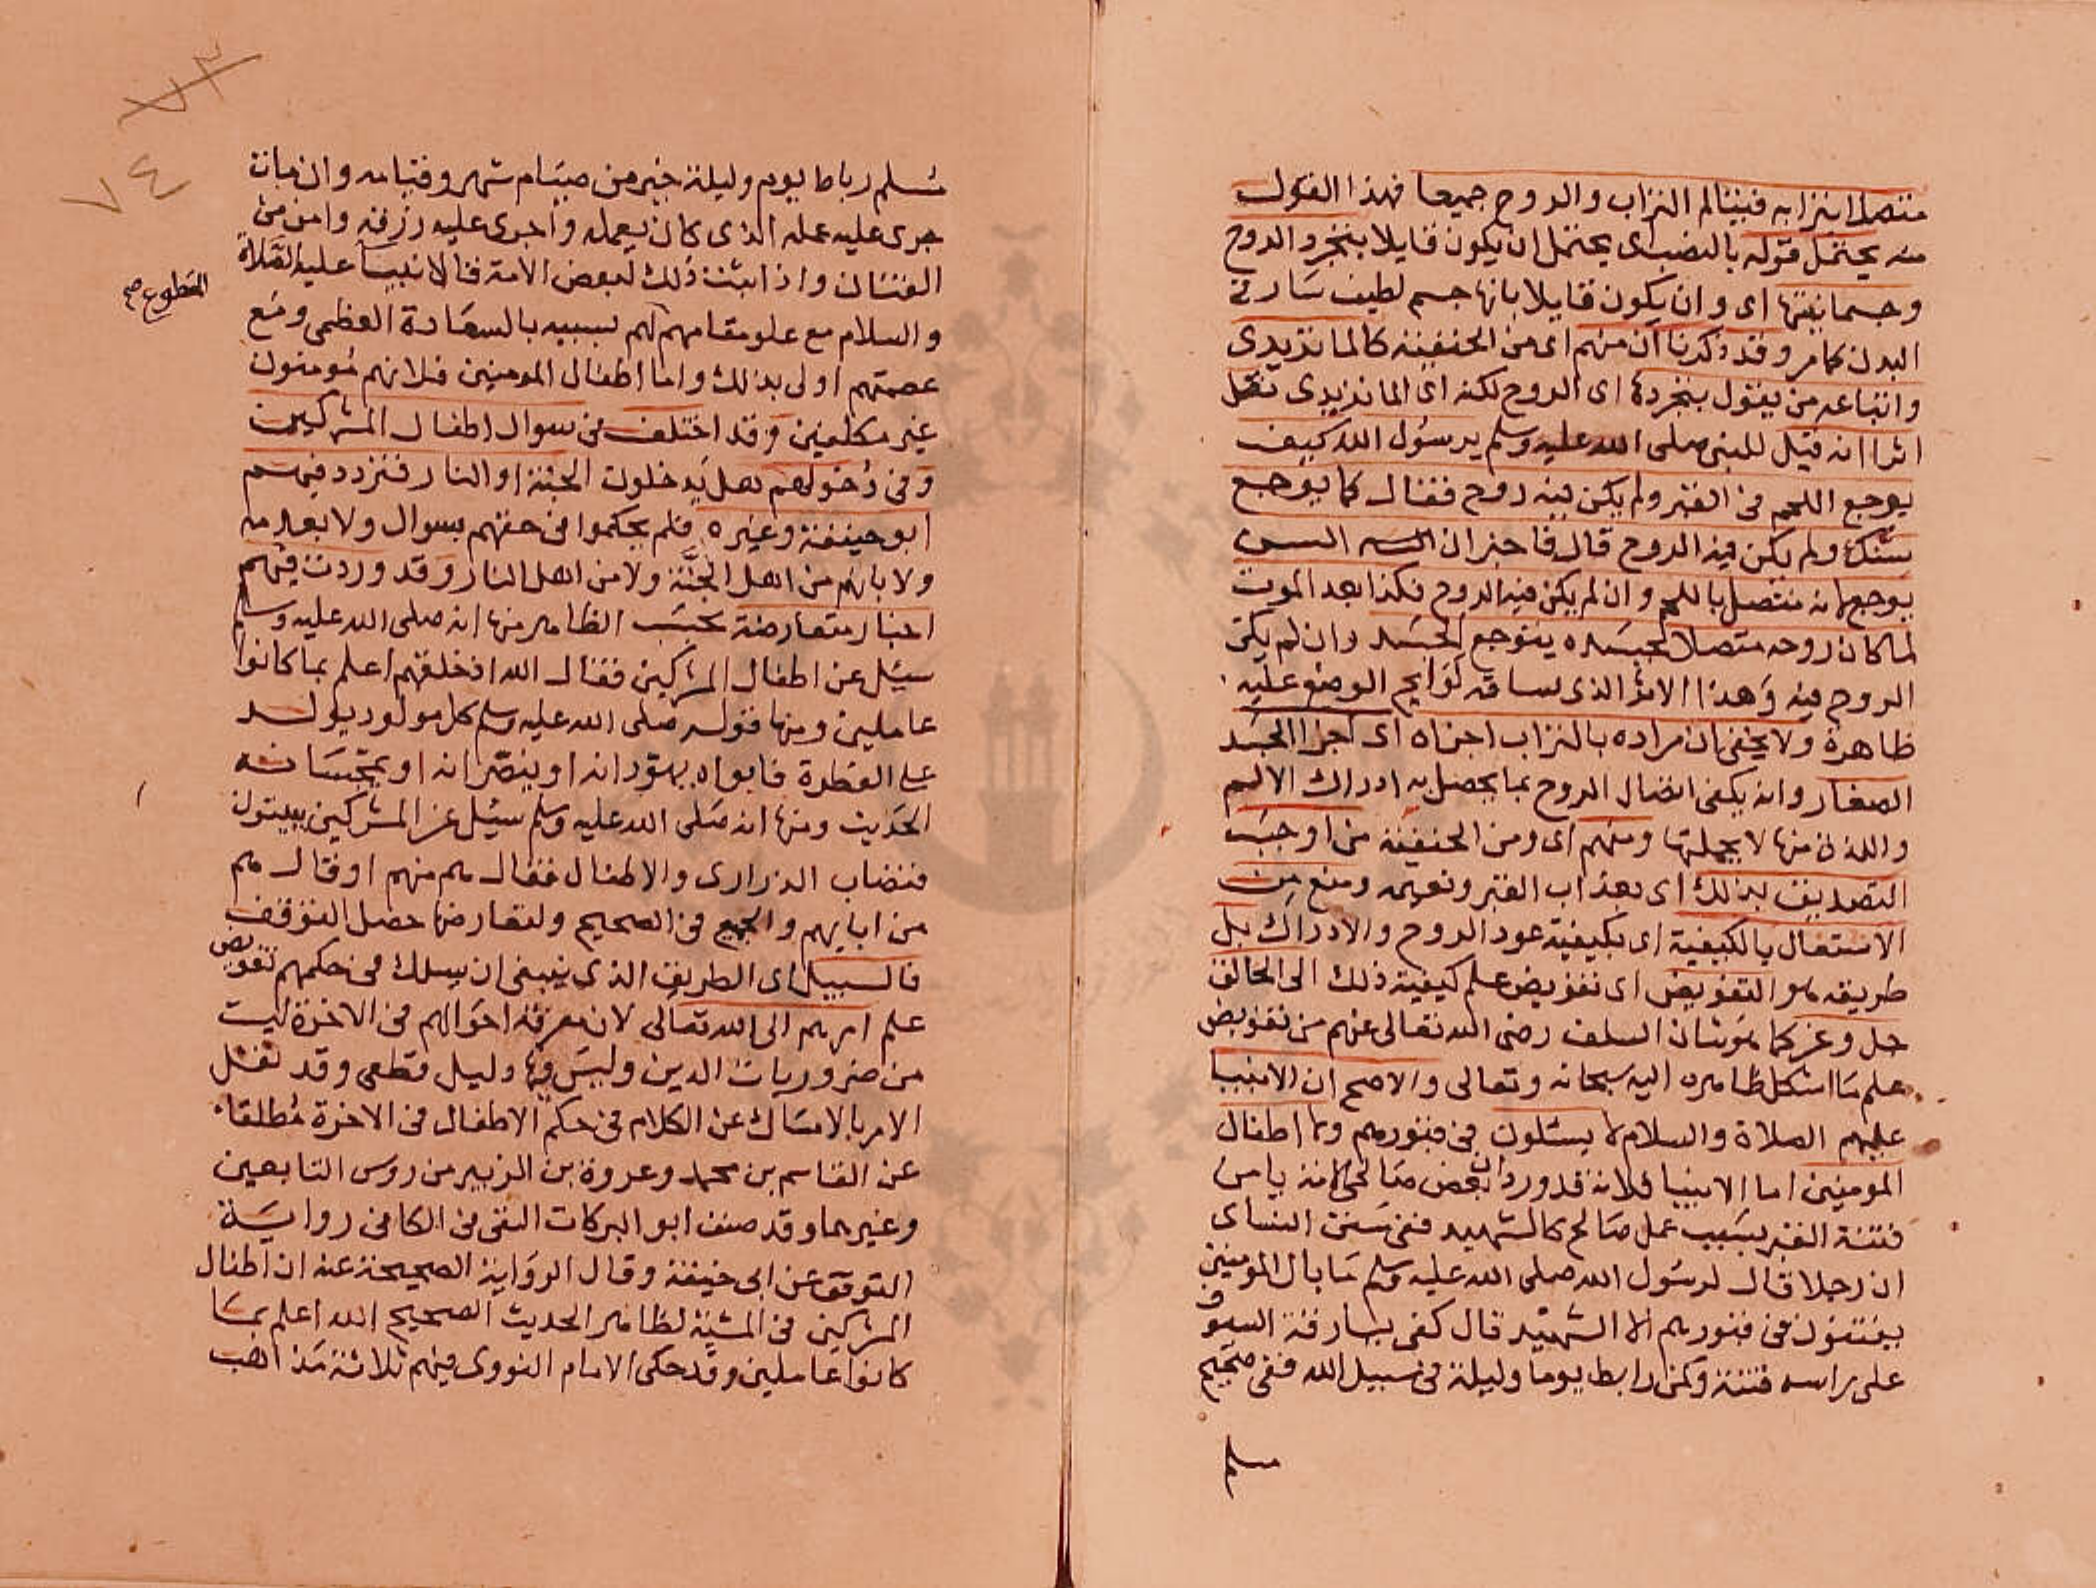 متصلا بترابه فيتالم التراب والروح جميعا فهذا القول
منه يحتمل قوله بالنصب اى يحتمل ان يكون قايلا بتجرد الروح
وجسمانيتها اى وان يكون قايلا بانها جسم لطيف سار فى
البدن كما مر وقد ذكرنا ان منهم اى من الحنفية كالماتريدى
واتباعه من يقول بتجردها اى الروح لكنه اى الماتريدى نقل
اثرا انه قيل للنبى صلى الله عليه وسلم يرسول الله كيف
يوجع اللحم فى القبر ولم يكن فيه روح فقال كما يوجع
سنك ولم يكن فيه الروح قال فاخبر ان السن
يوجع لانه متصل باللحم وان لم يكن فيه الروح فكذا بعد الموت
لما كان روحه متصلا بجسده يتوجع الجسد وان لم يكن
الروح فيه وهذا الاثر الذى ساقه لوايح الوضع عليه
ظاهرة ولا يخفى ان مراده بالتراب اجزاه اى اجزا الجسد
الصغار وانه يكفى اتصال الروح بما يحصل به ادراك الالم
واللذة منها لا بجملتها ومنهم اى ومن الحنفية من اوجب
التصديق بذلك اى بعذاب القبر ونعيمه ومنع من
الاشتغال بالكيفية اى بكيفية عود الروح والادراك بل
طريقه هو التفويض اى تفويض علم كيفية ذلك الى الخالق
جل وعز كما هو شان السلف رضى الله تعالى عنهم من تفويض
علم ما اشكل ظاهره اليه سبحانه وتعالى والاصح ان الانبيا
عليهم الصلاة والسلام لا يسئلون فى قبورهم ولا اطفال
المومنين اما الانبيا فلانه قد ورد ان بعض صالحى الامة يامن
فتنة القبر بسبب عمل صالح كالشهيد ففى سنن النساى
ان رجلا قال لرسول الله صلى الله عليه وسلم ما بال المومنين
يفتنون فى قبورهم الا الشهيد قال كفى ببارقة السيوف
على راسه فتنة وكمن رابط يوما وليلة فى سبيل الله ففى صحيح
مسلم
٧٣
٧٤
مسلم رباط يوم وليلة خير من صيام شهر وقيامه وان مات
جرى عليه عمله الذى كان يعمله واجرى عليه رزقه وامن من
الفتنان واذا ثبت ذلك لبعض الامة فالانبيا عليهم الصلاة
والسلام مع علو مقامهم لهم بسببه بالسعادة العظمى ومع
المقطوع صح
عصمتهم اولى بذلك واما اطفال المومنين فلانهم مومنون
غير مكلفين وقد اختلف فى سوال اطفال المشركين
وفى دخولهم هل يدخلون الجنة او النار فتردد فيهم
ابو حنيفة وغيره فلم يحكموا فى حقهم بسوال ولا بعدمه
ولا بانهم من اهل الجنة ولا من اهل النار وقد وردت فيهم
اخبار متعارضة بحسب الظاهر منها انه صلى الله عليه وسلم
سئل عن اطفال المشركين فقال الله اذ خلقهم اعلم بما كانوا
عاملين ومنها قوله صلى الله عليه وسلم كل مولود يولد
على الفطرة فابواه يهودانه او ينصرانه او يمجسانه
الحديث ومنها انه صلى الله عليه وسلم سئل عن المشركين يبيتون
فتصاب الذرارى والاطفال فقال هم منهم او قال هم
من ابايهم والجميع فى الصحيح ولتعارضها حصل التوقف
فالسبيل اى الطريق الذى ينبغى ان يسلك فى حكمهم تفويض
علم امرهم الى الله تعالى لان معرفة احوالهم فى الاخرة ليست
من ضروريات الدين وليس فيها دليل قطعى وقد نقل
الامر بالامساك عن الكلام فى حكم الاطفال فى الاخرة مطلقا
عن القاسم بن محمد وعروة بن الزبير من روس التابعين
وغيرهما وقد ضعف ابو البركات النسفى فى الكافى رواية
التوقف عن ابى حنيفة وقال الرواية الصحيحة عنه ان اطفال
المشركين فى المشية لظاهر الحديث الصحيح الله اعلم بما
كانوا عاملين وقد حكى الامام النووى فيهم ثلاثة مذاهب